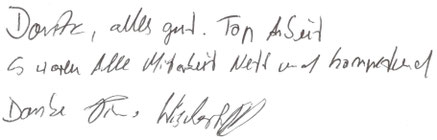 Danke, alles gut. Top Arbeit
Es waren Alle Mitarbeit Nett und kompetend
Danke